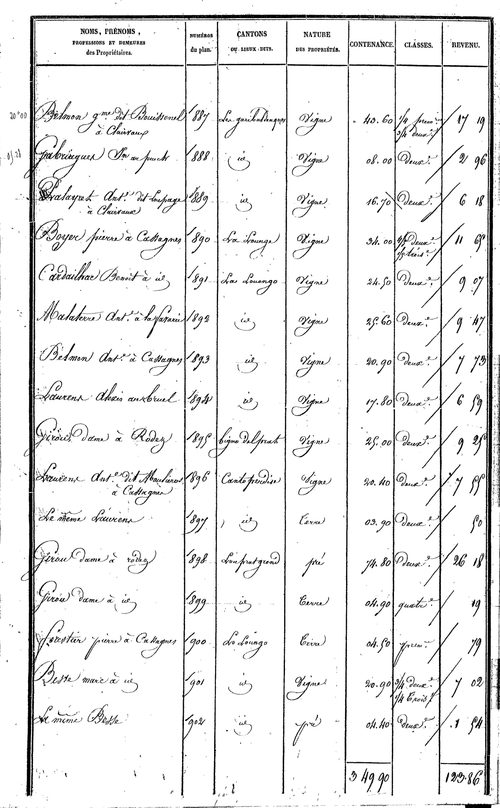 NOMS, PRÉNOMS, PROFESSIONS ET DEMEURES des Propriétaires. | NUMÉROS du plan. | CANTONS OU LIEUX-DITS. | NATURE DES PROPRIÉTÉS. | CONTENANCE. | CLASSES. | REVENU.
Belmon gme dit Bouissonel à Clairvaux 887 Vigne 43.60 17 19
888 id Vigne 08.00 Deux.e 2 96
Antne à Clairvaux 889 id Vigne 16.70 Deux.e 6 18
Boyer pierre à Cassagnes 890 La Loungo Vigne 34.00 11 65
Cardailhac Benoît à id 891 La Louongo Vigne 24.50 Deux.e 9 07
Malaterre Ant.e 892 id Vigne 25.60 Deux.e 9 47
Belmon Ant.e à Cassagnes 893 id Vigne 20.90 Deux.e 7 73
Laurens Alexis au bruel 894 id Vigne 17.80 deux.e 6 59
Girou dame à Rodez 895 Vigne 25.00 Deux.e 9 25
Laurens Ant.e dit à Cassagnes 896 Canto perdise Vigne 20.40 deux.e 7 55
Le même Laurens 897 id Terre 03.90 deux.e 50
Girou dame à rodez 898 Lou prat grond pré 74.80 Deux.e 26 18
Girou dame à id 899 id Terre 04.90 quatr.e 19
Forestier pierre à Cassagnes 900 La Loungo Terre 04.50 prem.e 79
Besse marc à id 901 id Vigne 20.90 3/4 deux.e 1/4 trois.e 7 02
Le même Besse 902 id pré 04.40 deux.e 1 54
3 49 90 123.86